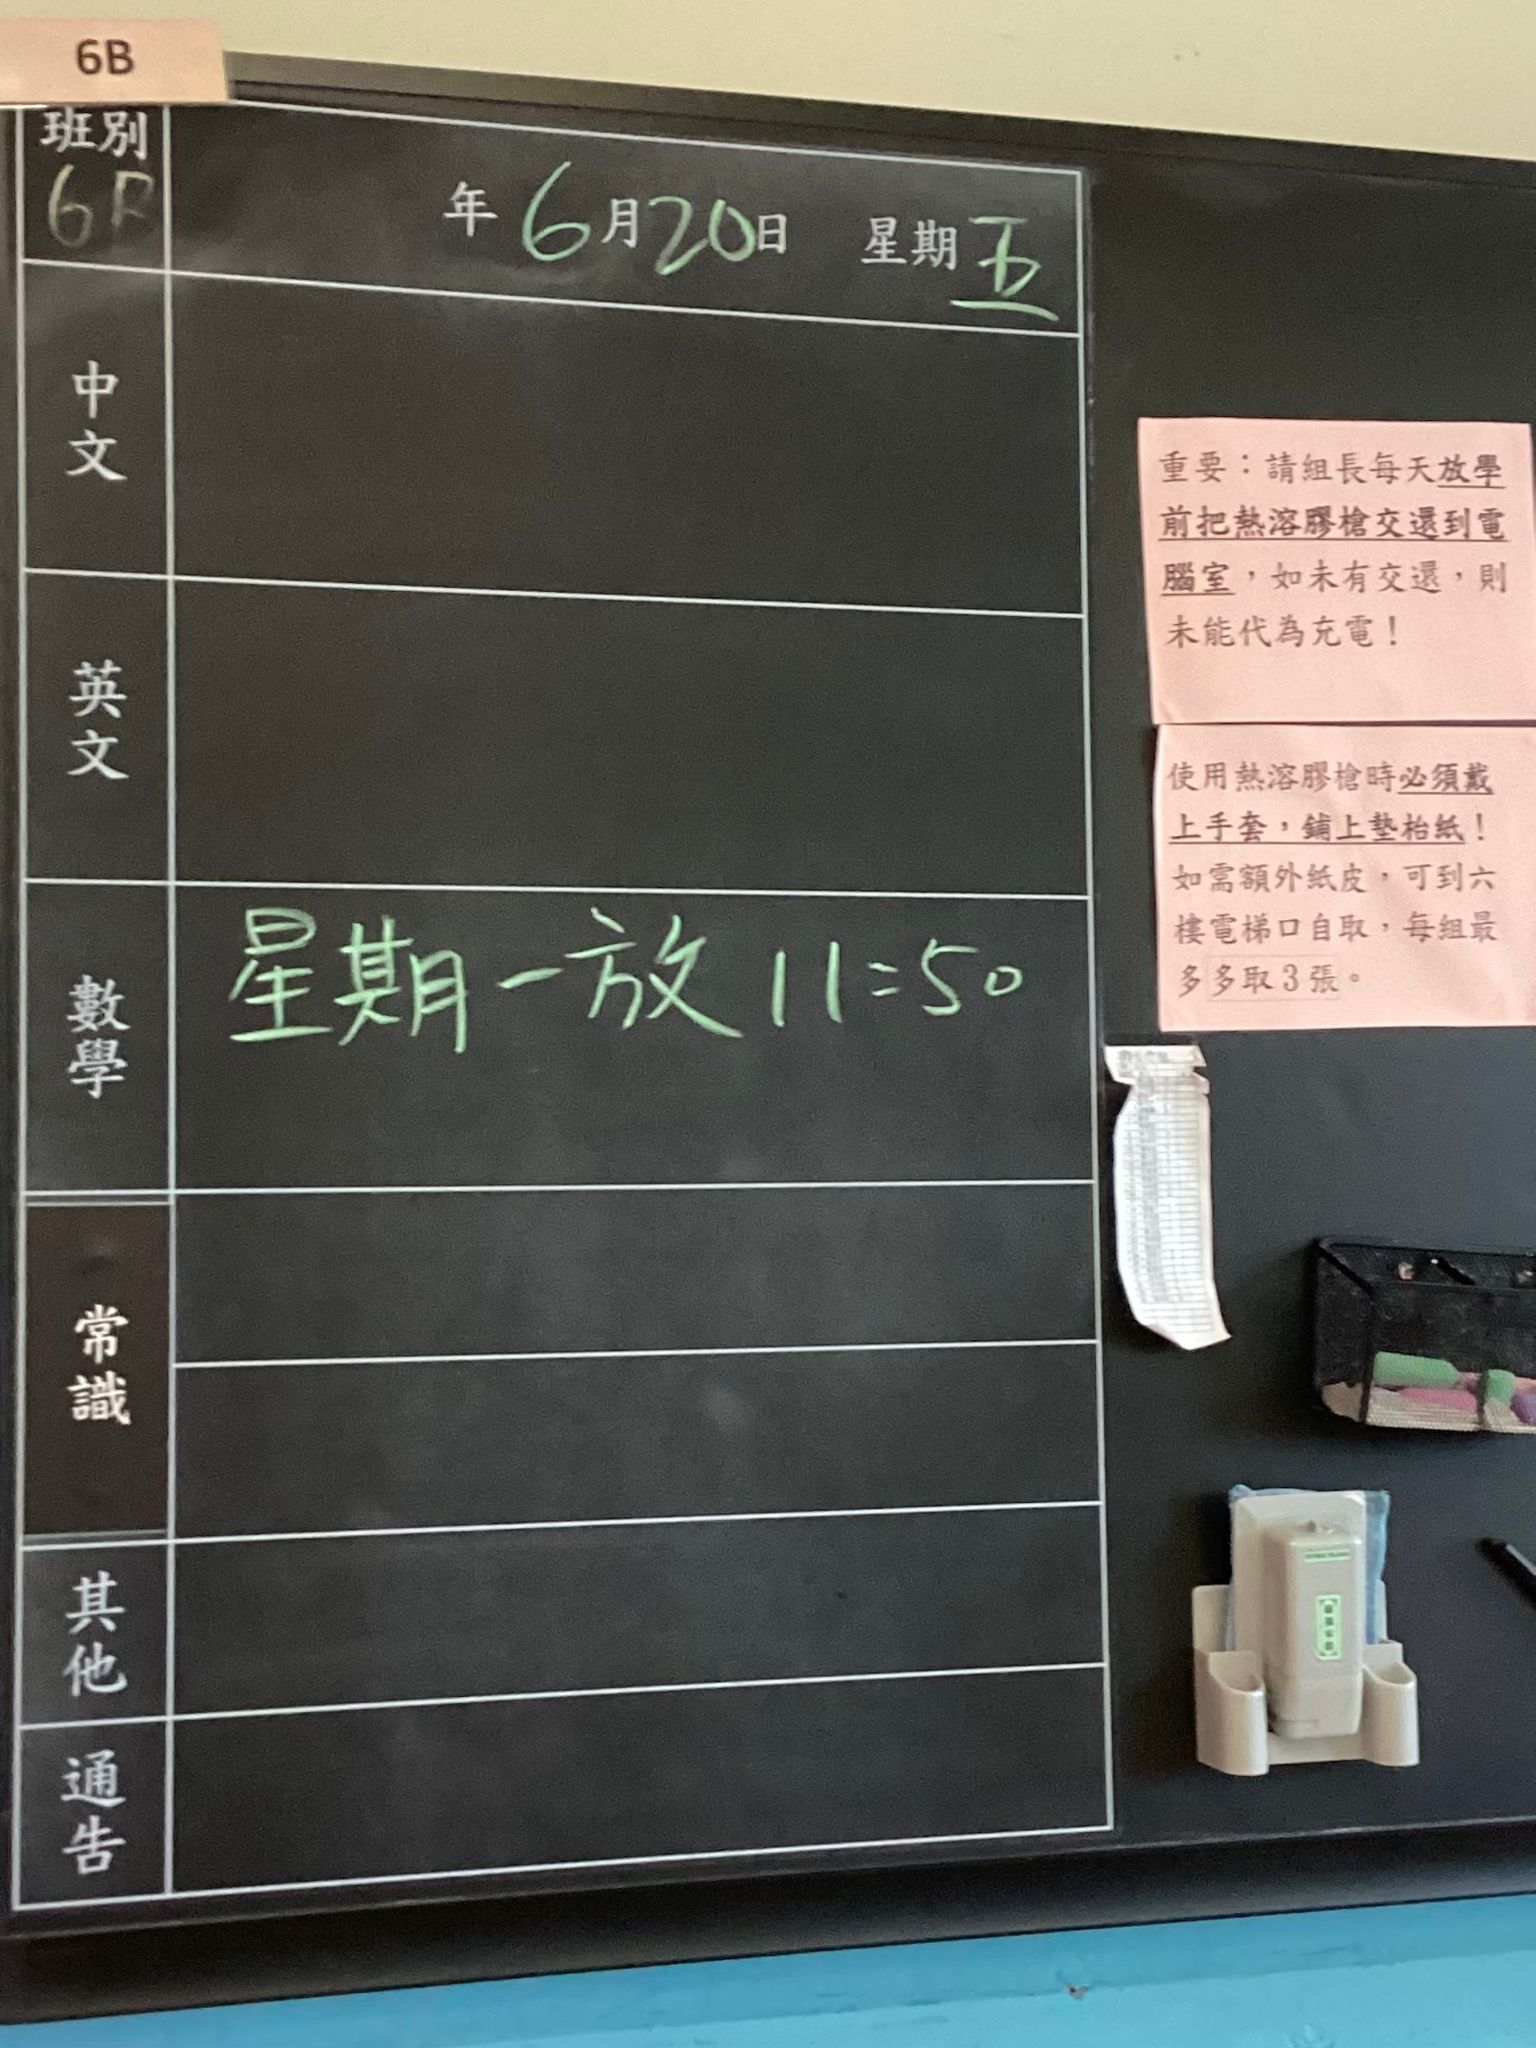 6B
班別
6B
年 6月20日 星期五
中文
英文
數學
星期一放 11:50
常識
其他
通告
重要：請組長每天放學
前把熱溶膠槍交還到電
腦室，如未有交還，則
未能代為充電！
使用熱溶膠槍時必須戴
上手套，鋪上墊枱紙！
如需額外紙皮，可到六
樓電梯口自取，每組最
多多取3張。